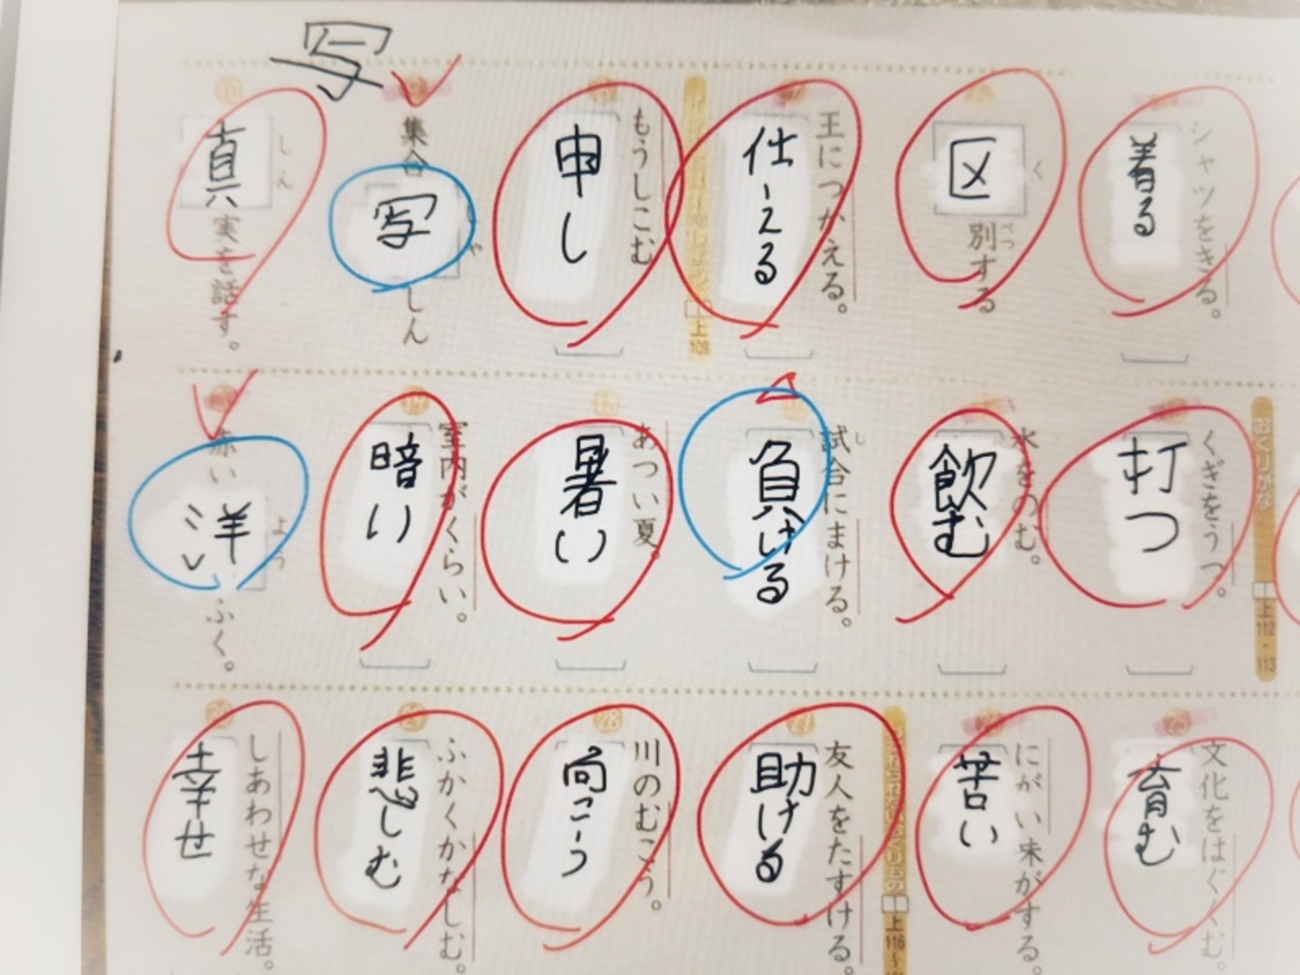 シャツをきる。
着る
区別する
く
べつ
王につかえる。
仕える
上
108
もうしこむ
申し
集合写しん
しゃ
写
真実を話す。
しん
おくりがな
上
112・113
くぎをうつ。
打つ
水をのむ。
飲む
試合にまける。
し
負ける
あつい夏。
暑い
室内がくらい。
暗い
赤い洋ふく。
よう
25
文化をはぐくむ。
育む
にがい味がする。
苦い
上
116〜
27
友人をたすける。
助ける
28
川のむこう。
向こう
29
ふかくかなしむ。
悲しむ
しあわせな生活。
幸せ